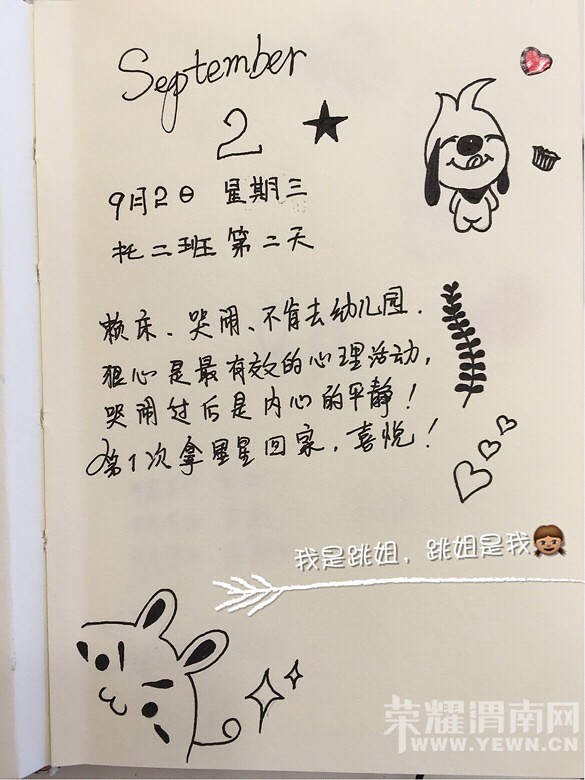 September
2
9月2日 星期三
托二班 第二天
赖床、哭闹、不肯去幼儿园.
狠心是最有效的心理活动,
哭闹过后是内心的平静!
第1次拿星星回家,喜悦!
我是跳姐，跳姐是我
荣耀渭南网
WWW.YEWN.CN